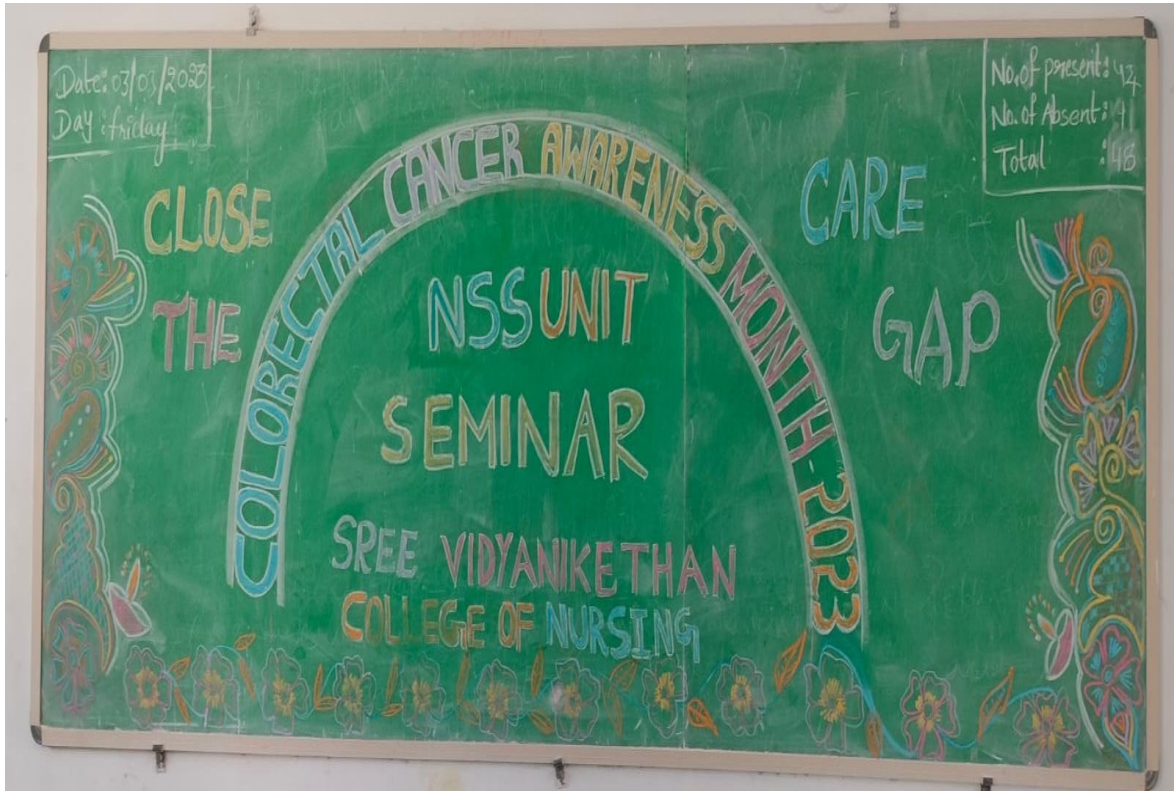 Date: 03/03/2023
Day: friday
No. of present:
No. of Absent:
Total : 48
COLORECTAL CANCER AWARENESS MONTH - 2023
CLOSE
THE
CARE
GAP
NSS UNIT
SEMINAR
SREE VIDYANIKETHAN
COLLEGE OF NURSING